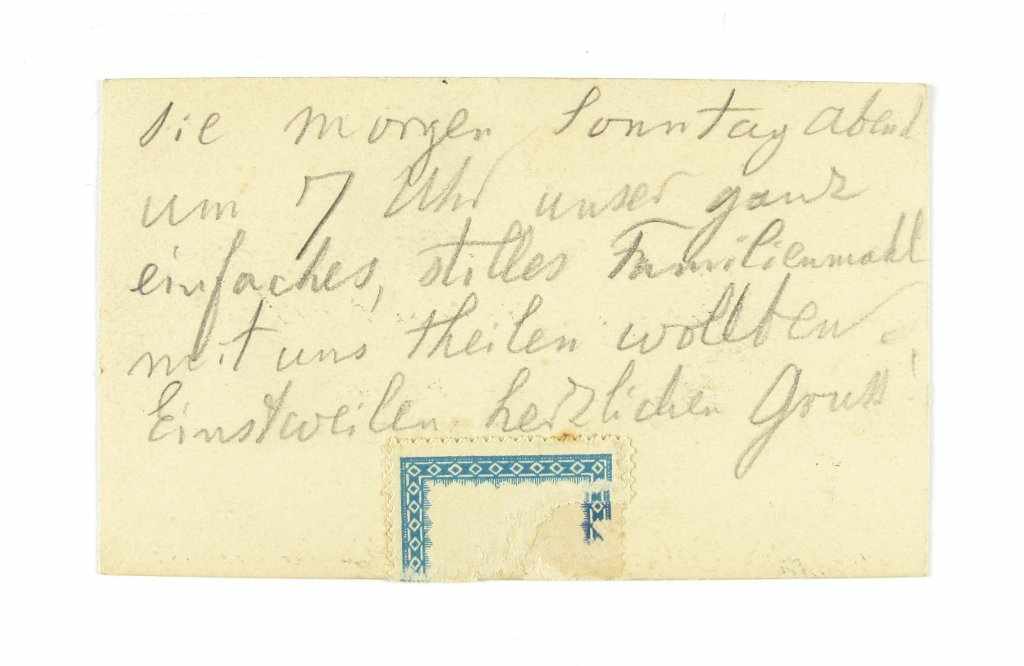 Sie morgen Sonntag abend
um 7 Uhr unser ganz
einfaches, stilles Familienmahl
mit uns theilen wollten.
Einstweilen herzlichen Gruss!